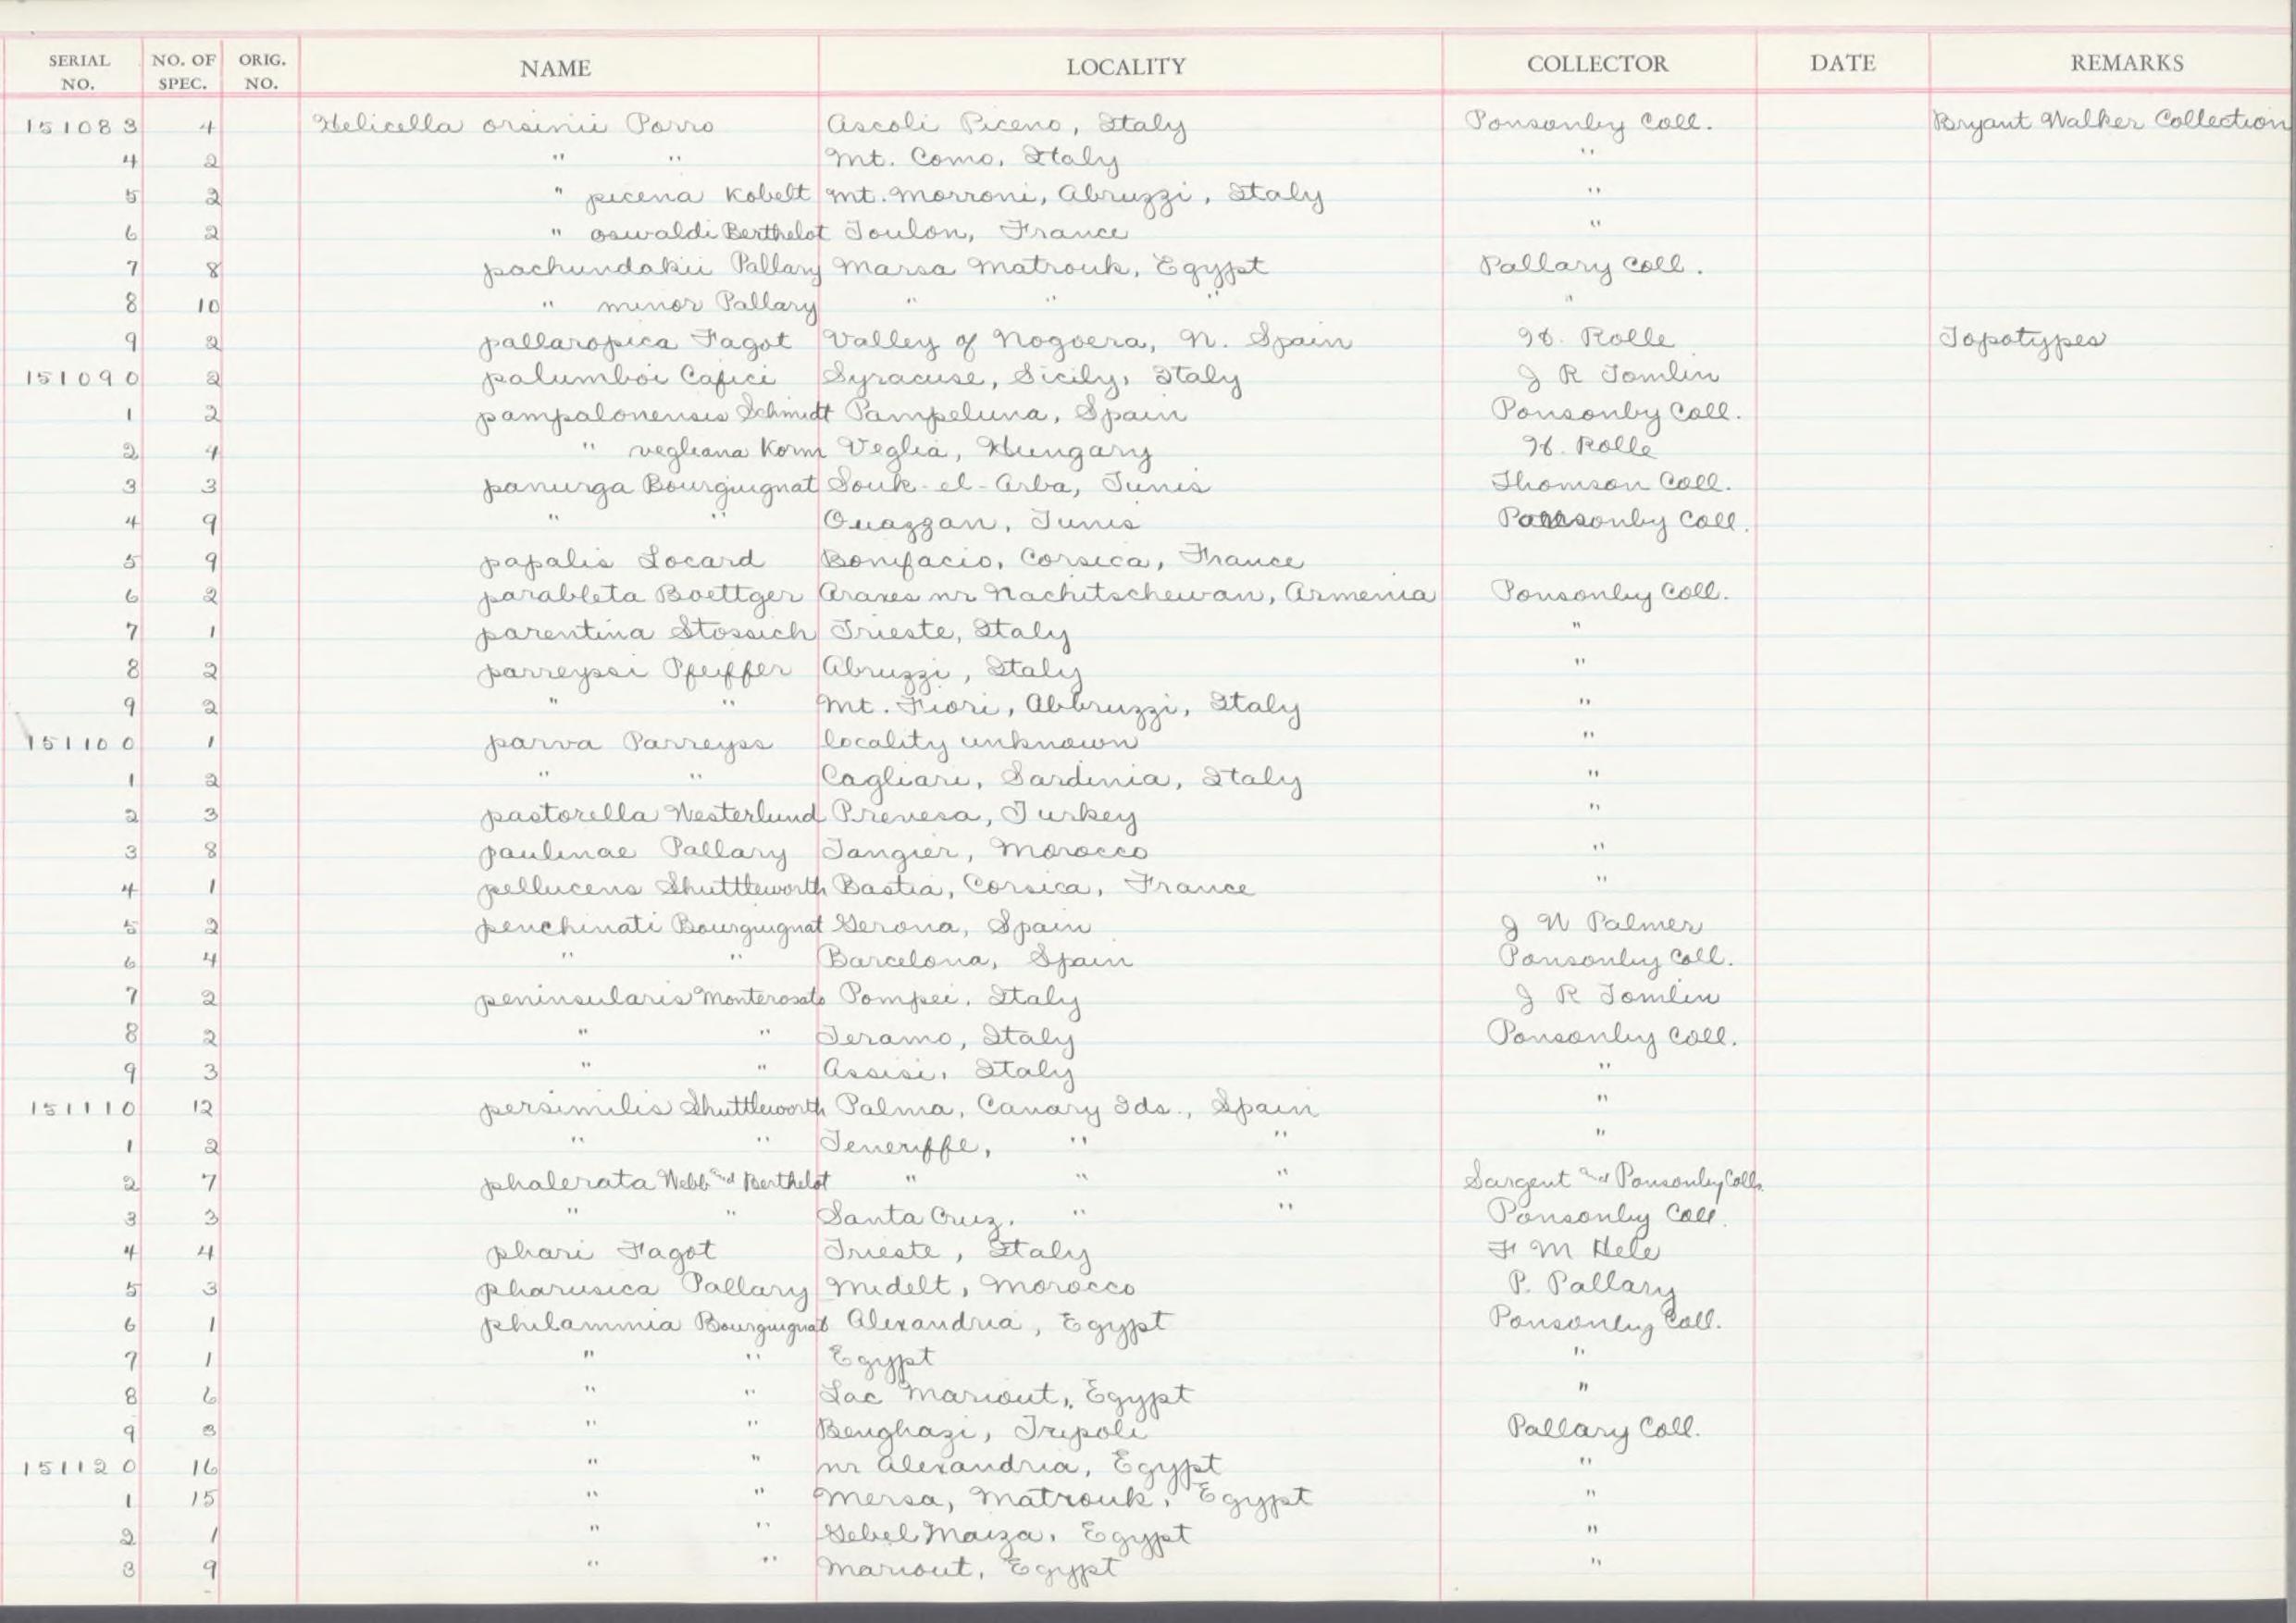 SERIAL NO. NO. OF SPEC. ORIG. NO. NAME LOCALITY COLLECTOR DATE REMARKS
151083 4 Helicella orsinii Porro Ascoli Piceno, Italy Ponsonby Coll. Bryant Walker Collection
4 2 " " Mt. Como, Italy "
5 2 " picena Kobelt Mt. Morroni, Abruzzi, Italy "
6 2 " oswaldi Berthelot Toulon, France "
7 8 pachundakii Pallary Marsa Matrouk, Egypt Pallary Coll.
8 10 " minor Pallary " " " "
9 2 pallaropica Fagot Valley of Nogoera, N. Spain H. Rolle Topotypes
151090 2 palumboi Cafici Syracuse, Sicily, Italy J R Tomlin
1 2 pampalonensis Schmidt Pampeluna, Spain Ponsonby Coll.
2 4 " vegliana Korm Veglia, Hungary H. Rolle
3 3 panurga Bourguignat Souk-el-Arba, Tunis Thomson Coll.
4 9 " " Ouazzan, Tunis Ponsonby Coll.
5 9 papalis Locard Bonifacio, Corsica, France
6 2 parableta Boettger Araxes nr Nachitschewan, Armenia Ponsonby Coll.
7 1 parentina Stossich Trieste, Italy "
8 2 parreyssi Pfeiffer Abruzzi, Italy "
9 2 " " Mt. Fiori, Abbruzzi, Italy "
151100 1 parva Parreyss locality unknown "
1 2 " " Cagliari, Sardinia, Italy "
2 3 pastorella Westerlund Prevesa, Turkey "
3 8 paulinae Pallary Tangier, Morocco "
4 1 pellucens Shuttleworth Bastia, Corsica, France "
5 2 penchinati Bourguignat Gerona, Spain J W Palmer
6 4 " " Barcelona, Spain Ponsonby Coll.
7 2 peninsularis Monterosato Pompei, Italy J R Tomlin
8 2 " " Teramo, Italy Ponsonby Coll.
9 3 " " Assisi, Italy "
151110 12 persimilis Shuttleworth Palma, Canary Ids., Spain "
1 2 " " Teneriffe, " " "
2 7 phalerata Webb and Berthelot " " " Sargent and Ponsonby Colls.
3 3 " " Santa Cruz, " " Ponsonby Coll.
4 4 phari Fagot Trieste, Italy F M Hele
5 3 pharusica Pallary Midelt, Morocco P. Pallary
6 1 philammia Bourguignat Alexandria, Egypt Ponsonby Coll.
7 1 " " Egypt "
8 6 " " Lac Mariout, Egypt "
9 3 " " Benghazi, Tripoli Pallary Coll.
151120 16 " " nr Alexandria, Egypt "
1 15 " " Mersa, Matrouk, Egypt "
2 1 " " Gebel Maiza, Egypt "
3 9 " " Mariout, Egypt "